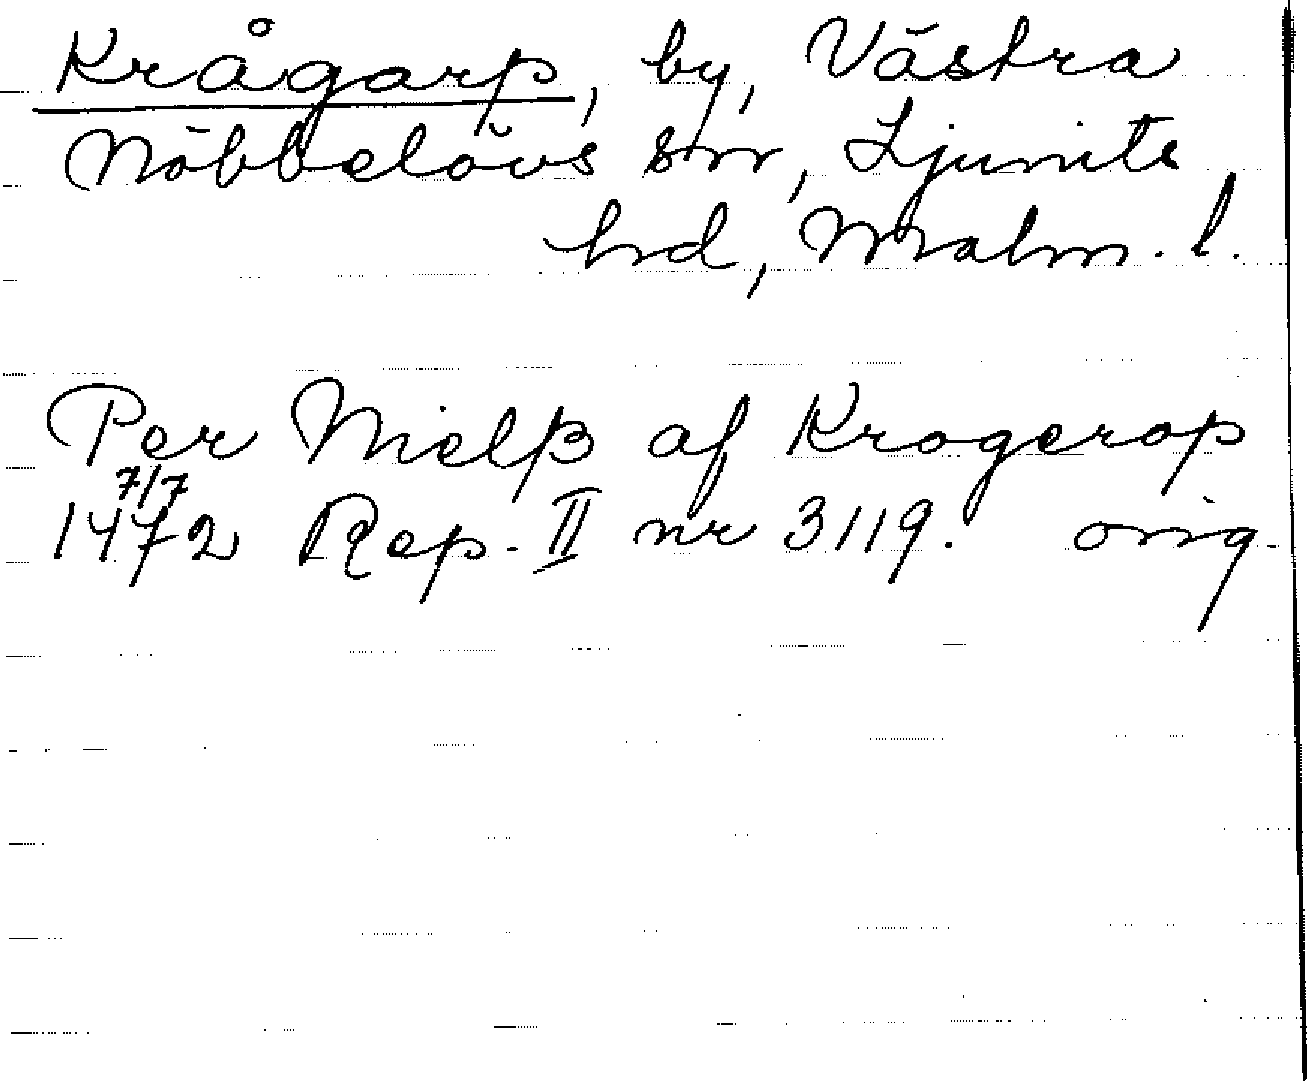 Krågarp, by, Västra
Nöbbelövs sn, Ljunits
hd, Malm. l.
Per Nielß af Krogerop
7/7
1472 Rep. II nr 3119. orig.